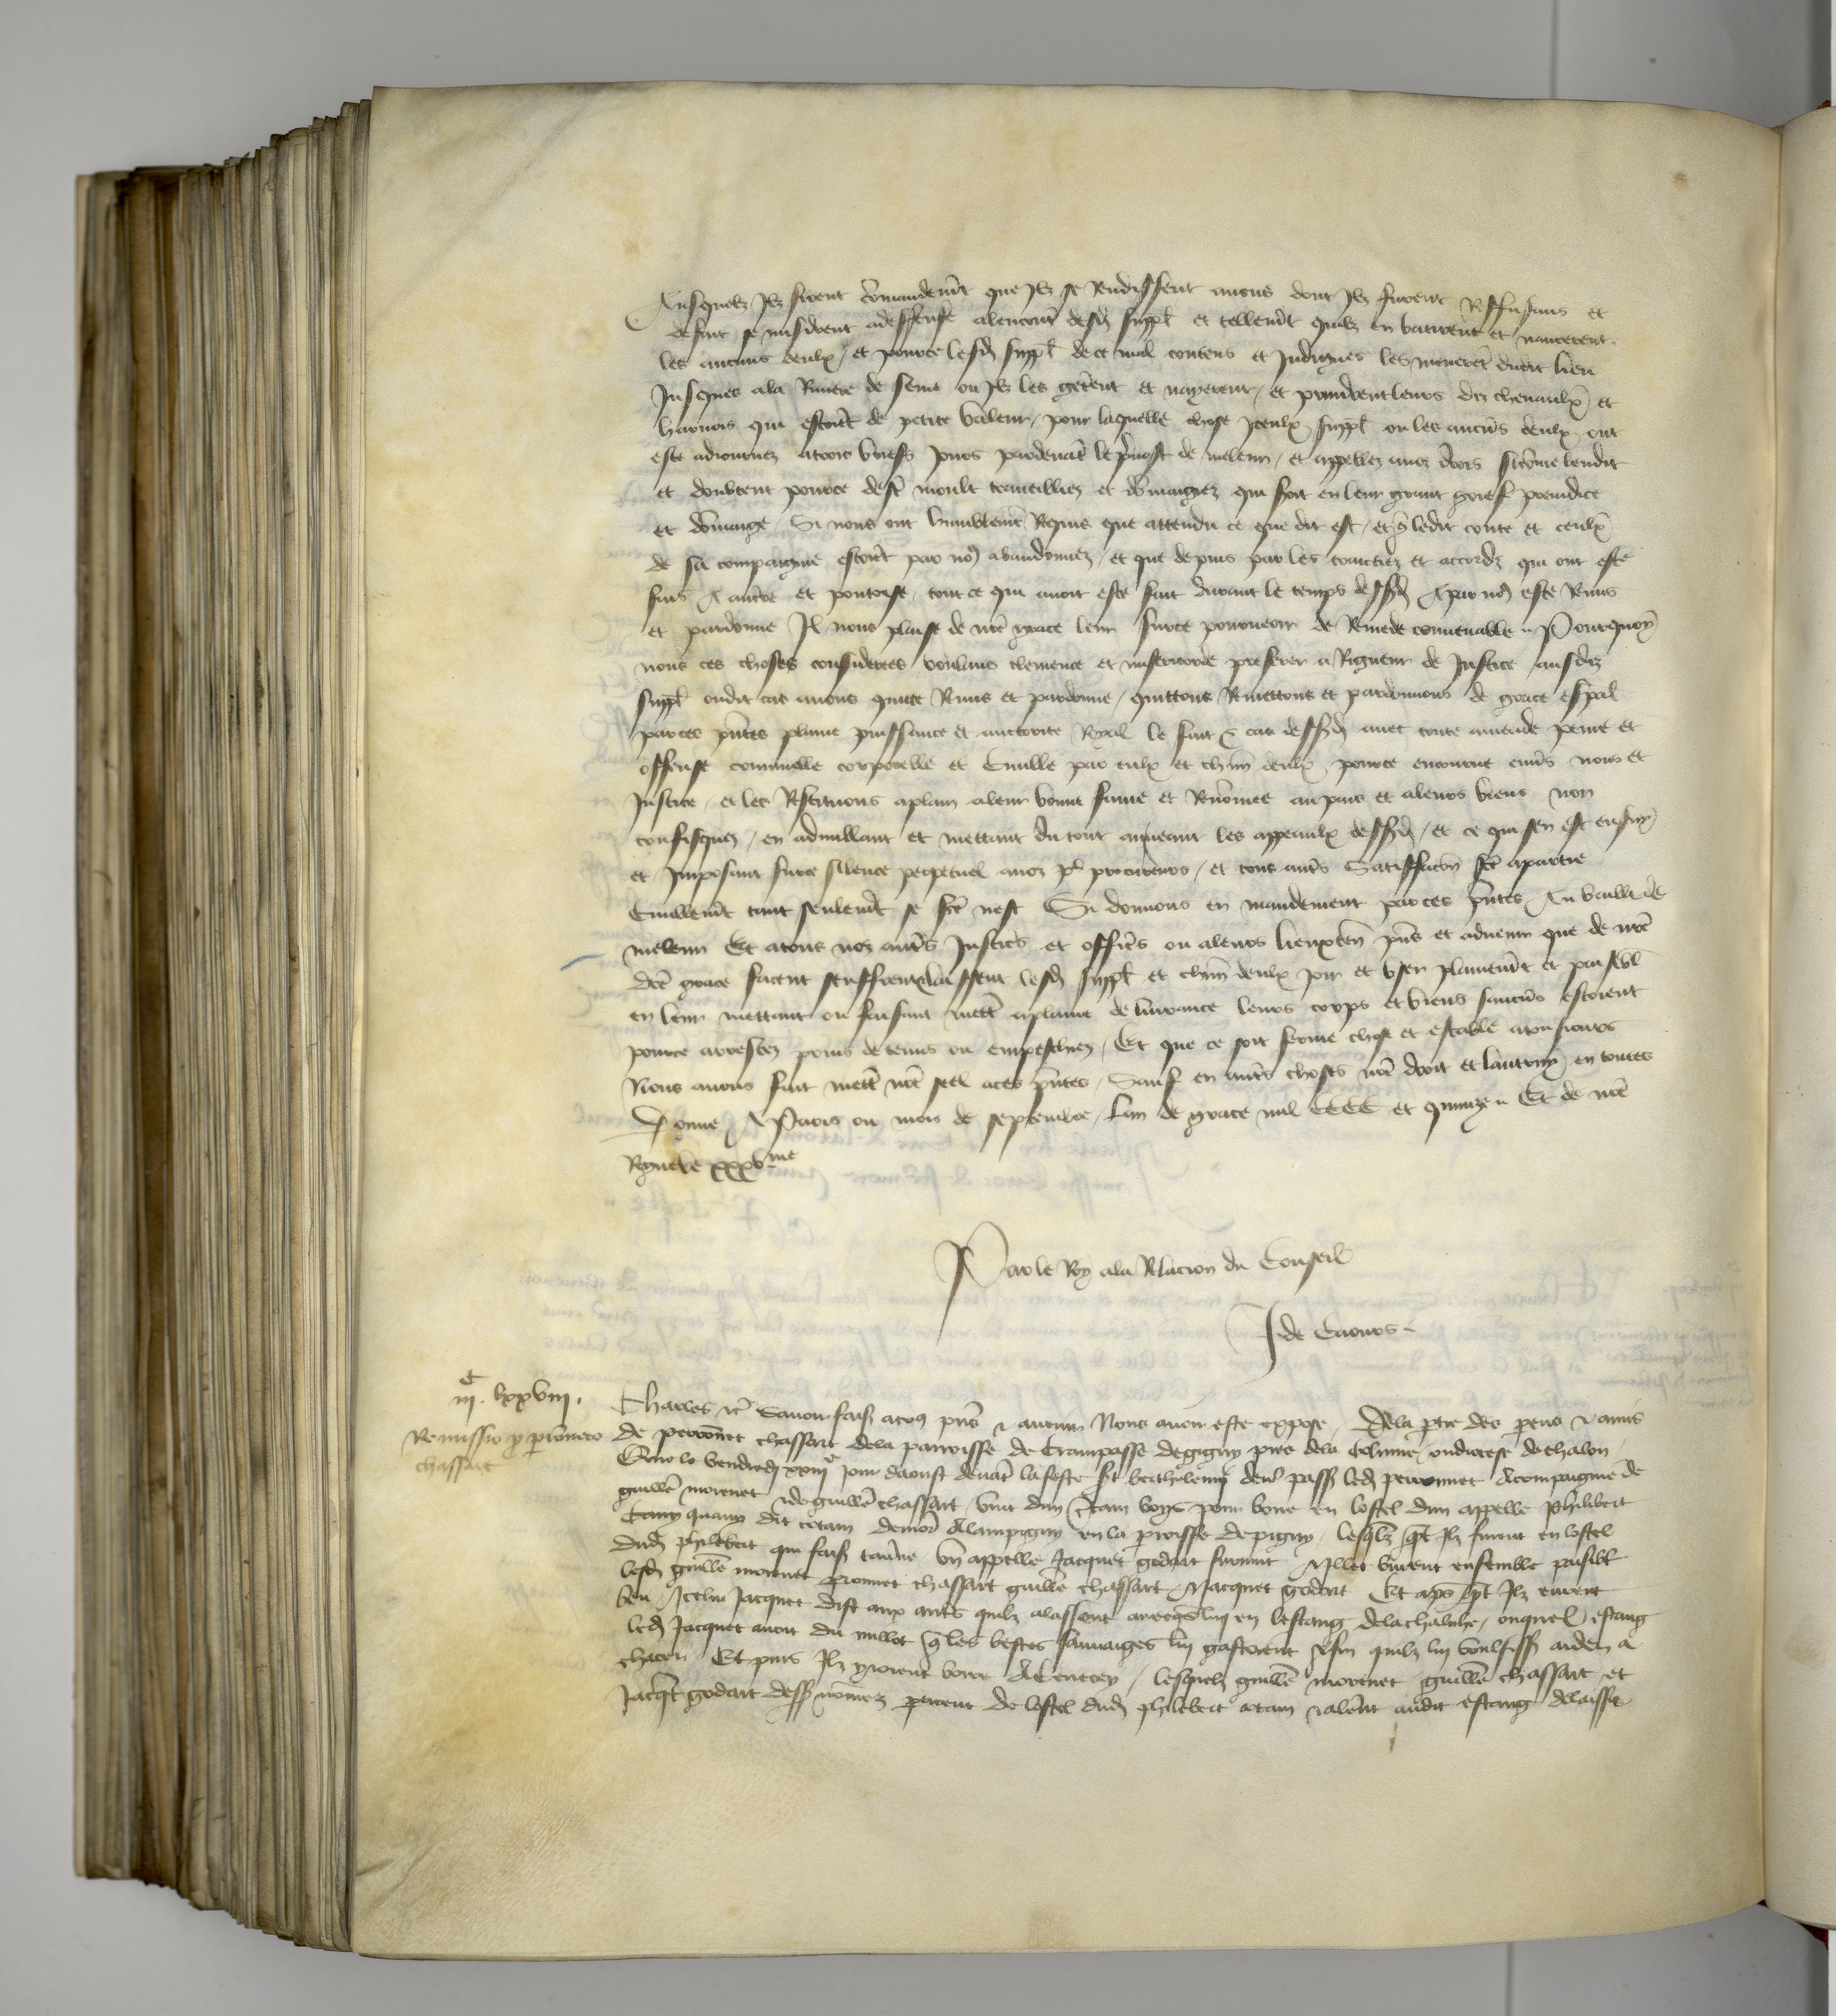 Ausquelz Ilz firent cõmandemt que Ilz se rendissent a nous dont Ilz furent Reffusans et
de fait se misdrent a deffense alencontre desd suppl et tellemt quilz en batirent et navrerent
les aucuns deulx / et pource lesd suppl de ce mal contens et Indignes les menerent dudit lieu
Jusques a la Riviere de seine ou Ilz les geterent et nayerent / et prindrent leurs diz chevaulx et
harnois qui estoiet de petite valeur / pour laquelle chose Iceulx suppl ou les aucũs deulx ont
este adiournez a trois briefs jours pardevat le pvost de meleun / et appellez a noz drois sicõme lendit
et doubtent pource destre moult travailliez et dõmaigez qui seroit en leur grant grief preiudice
et dõmaige Si nous ont humblemt Requis que attendu ce que dit est / et q ledit conte et ceulx
de sa compaignie estoiet par noz abandonnez / et que depuis par les traictiez et accords qui ont este
fais A aucrre et pontoise tout ce qui avoit este fait durant le temps dessd A par no este Remis
et pardonne Il nous plaise de nre grace leur sur ce pourveoir de Remede convenable Pourquoy
nous ces choses considerees voulans clemence et misericorde preferer a Rigueur de Justice ausdiz
suppl oudit cas avons quitte Remis et pardonne / quittons Remettons et pardonnons de grace espal
par ces pntes plaine puissance et auctorite Royal le fait & cas dessd avec toute amende peine et
offense criminelle corporelle et Civille par eulx et chun deulx pource encourue envs nous et
Justice / et les Restituons a plain a leur bonne fame et Renõmee au pais et a leurs biens non
confisquez / en adnullant et mettant du tout au neant les appeaulx dessd / et ce qui sen est ensuy
et Imposant sur ce silence perpetuel a noz pcl procureurs / et tous autrs Satisfacon fce a partie
Civillemt tant seulemt se fce nest Si donnons en mandement par ces pntes Au bailli de
meleun Et a tous noz autrs Justicrs et officrs ou a leurs lieuxten pns et advenir que de nre
dce grace facent seuffrent & laissent lesd suppl et chun deulx joir et user plainemt et paisibl
en leur mettant ou faisant mett a plaine delivrance leurs corps et biens saucũs estoient
pource arrestez prins detenus ou empeschiez / Et que ce soit ferme chose et estable a tousjours
Nous avons fait mett nre seel a ces pntes / Sauf en autrs choses nre droit et lautruy en toutes
Donne A Paris ou mois de septembre Lan de grace mil CCCC et quinze Et de nre
Regne le xxxvme
Par le Roy a la Relacion du Conseil
J de Crvons
iijC lxxviij.
Remissio p peroneto
chassart
Charles &c Savoir fais a tos pns & avenir Nous avoir este expose / De la ptie des pens & amis
de perronet chassart de la parroisse de Crampasse de gigny pres de la Colonne ou diocese de chalon
Que le vendredi xxiije jour daoust devat la feste st berthelemy derr passe led perronnet Acompaigne de
guille morenet & de guille chassart
dud philebert qui fais taverne un appelle Jacquet godart survint & illec burent ensemble paisibl
lesd guille morenet peronnet chassart guille chassart & Jacquet godart Et aps qt Ilz eurent
beu Icelui Jacquet dist aux autrs quilz alassent avecqs lui en lestang de la chaulme / ouquel estang
led Jacquet avoit du millot q les bestes sauvaiges lui gastoient Afin quilz lui voulsiss aidier a
chacer Et puis Ilz yroient boire A lentrey / Lesquelz guille morenet guille chassart et
Jacqt godart dess nõmez ptirent de lostel dud philebert & alert audit estang & delaissie